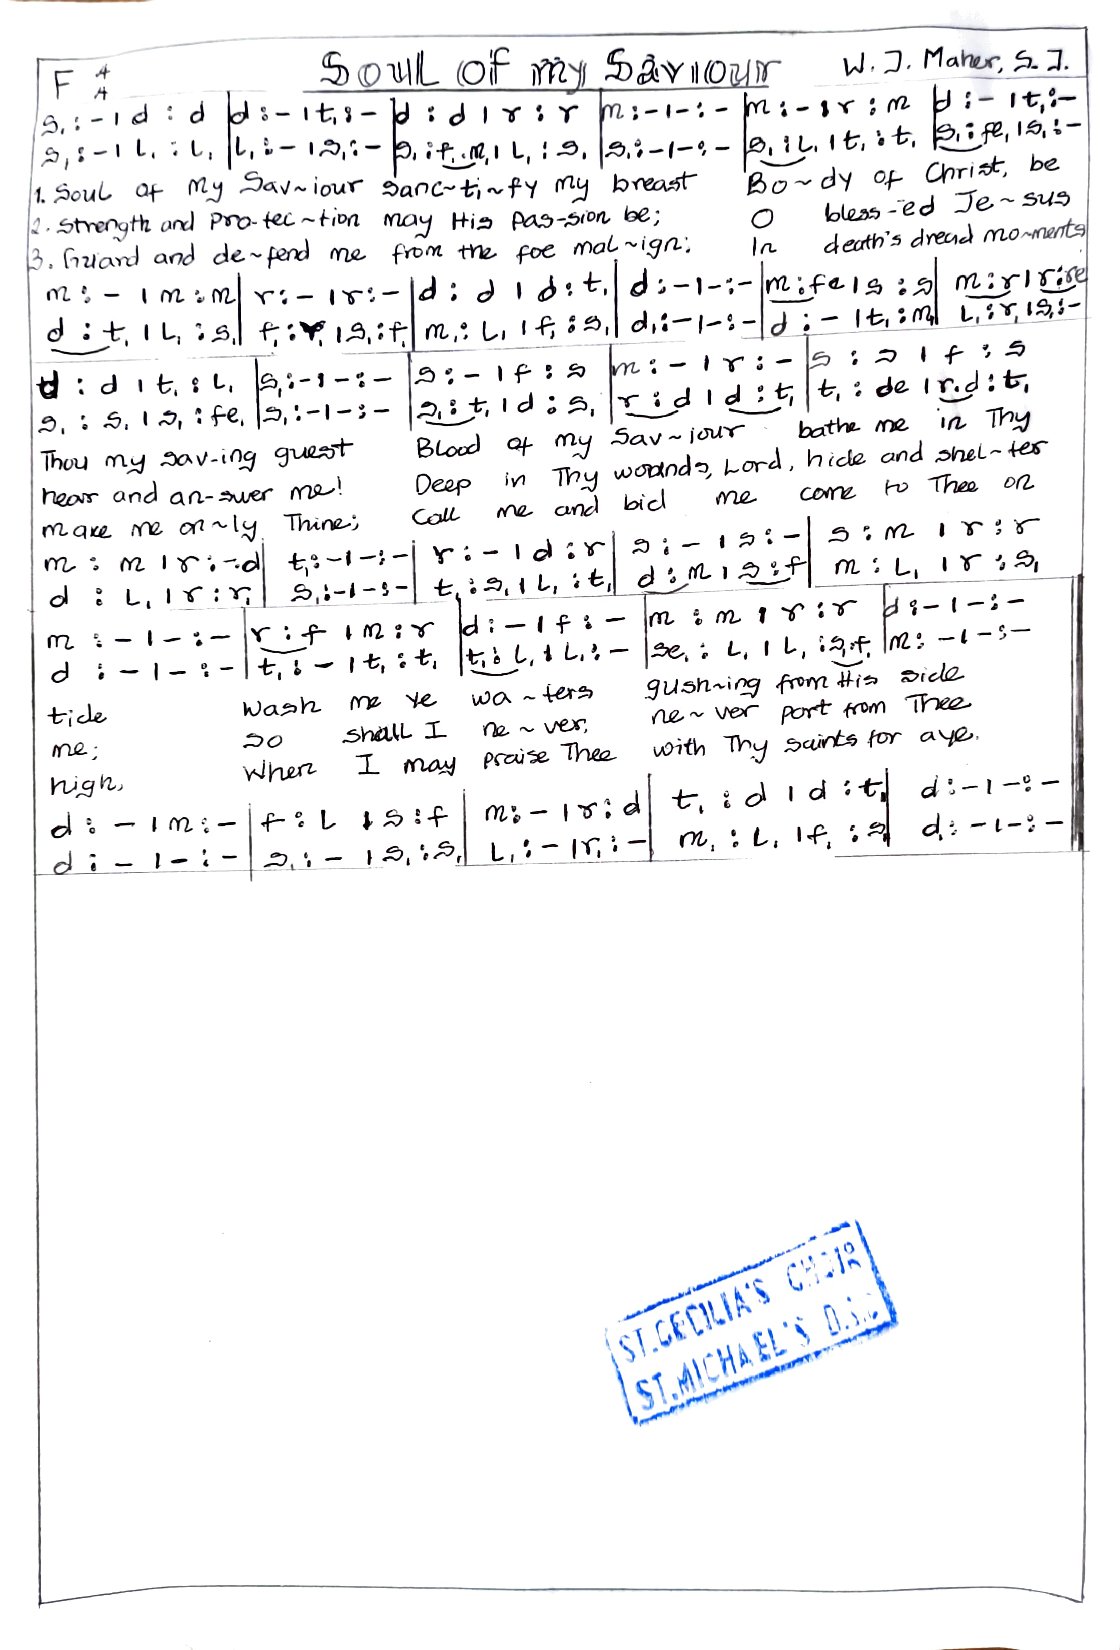 F 4/4 Soul of my Saviour W. J. Maher, S.J.
s, : - | d : d | d : - | t, : - | d : d | r : r | m : - | - : - | m : - | r : m | d : - | t, : -
s, : - | l, : l, | l, : - | s, : - | s, : f, . m, | l, : s, | s, : - | - : - | s, : l, | t, : t, | s, : fe, | s, : -
1. Soul of my Sav~iour sanc~ti~fy my breast Bo~dy of Christ, be
2. Strength and pro-tec~tion may His pas-sion be; O bless-ed Je~sus
3. Guard and de~fend me from the foe mal~ign: In death's dread mo~ments
m : - | m : m | r : - | r : - | d : d | d : t, | d : - | - : - | m : fe | s : s | m : r | r : re
d : t, | l, : s, | f, : r, | s, : f, | m, : l, | f, : s, | d, : - | - : - | d : - | t, : m, | l, : r, | s, : -
d : d | t, : l, | s, : - | - : - | s : - | f : s | m : - | r : - | s : s | f : s
s, : s, | s, : fe, | s, : - | - : - | s, : t, | d : s, | r : d | d : t, | t, : de | r . d : t,
Thou my sav-ing guest Blood of my Sav~iour bathe me in Thy
hear and an-swer me! Deep in Thy wounds, Lord, hide and shel~ter
make me on~ly Thine; Call me and bid me come to Thee on
m : m | r : - . d | t, : - | - : - | r : - | d : r | s : - | s : - | s : m | r : r
d : l, | r : r, | s, : - | - : - | t, : s, | l, : t, | d : m | s : f | m : l, | r : s,
m : - | - : - | r : f | m : r | d : - | f : - | m : m | r : r | d : - | - : -
d : - | - : - | t, : - | t, : t, | t, : l, | l, : - | se, : l, | l, : s, . f, | m, : - | - : -
tide Wash me ye wa~ters gush~ing from His side
me; So shall I ne~ver, ne~ver part from Thee
high, When I may praise Thee with Thy saints for aye.
d : - | m : - | f : l | s : f | m : - | r : d | t, : d | d : t, | d : - | - : -
d : - | - : - | s, : - | s, : s, | l, : - | r, : - | m, : l, | f, : s, | d, : - | - : -
ST. CECILIA'S CHOIR
ST. MICHAEL'S